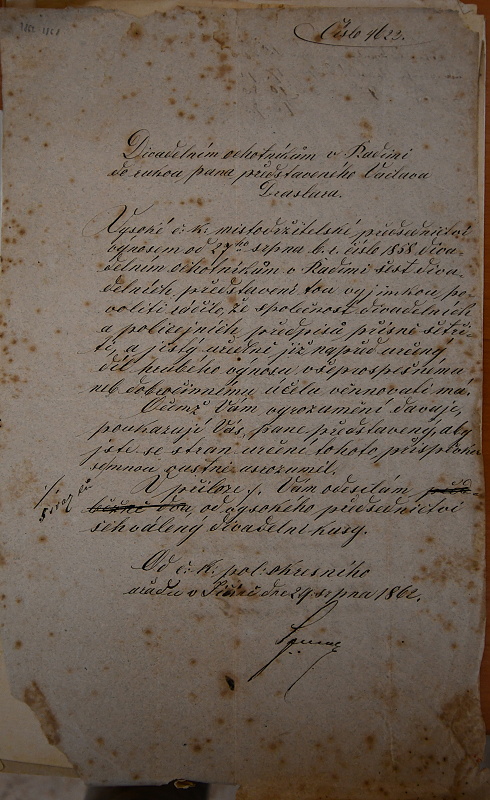 Číslo 4623.
Divadelním ochotníkům v Radimi
do rukou pana představeného Václava
Vysoké c. k. místodržitelské předsednictví
výnosem od 27ho srpna b. r. číslo 1858 diva-
delním ochotníkům v Radimi šest diva-
delních představení tou výjimkou po-
voliti ráčilo, že společnost divadelních
a policejních předpisů přísně šetři-
ti, a jistý určitý již napřed určený
díl hrubého výnosu všeprospěšnému
neb dobročinnému účelu věnovati má.
Očemž Vám vyrozumění dávaje,
poukazuji Vás, pane představený, aby
jste se stran určení tohoto příspěvku
semnou ústně usrozuměl.
V příloze ./. Vám odesílám
dva, od vysokého předsednictví
schválený divadelní kusy.
Od c. k. pol. okresního
úřadu v dne 29. srpna 1862.